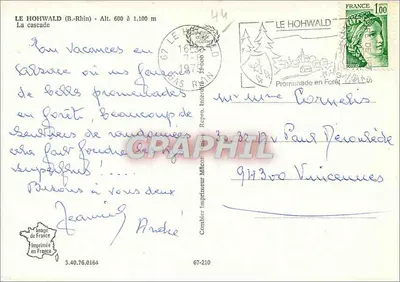 LE HOHWALD (B.-Rhin) - Alt. 600 à 1.100 m
La cascade
44
67 LE HOHWALD
BAS RHIN
LE HOHWALD
Promenade en Forêt
FRANCE
1,00
Bon Vacances en
Alsace où nous faisons
de belles promenades
en forêt, beaucoup de
sentiers de randonnées
cela fait fondre les
superflus !....
Bisous à vous deux
Jeannine
André
Mr Mme Cornelis
33-37 Rue Paul Deroulède
94300 Vincennes
CARPHIL
Combier Imprimeur Mâcon
Image
de France
Imprimée
en France
3.40.76.0164
67-210